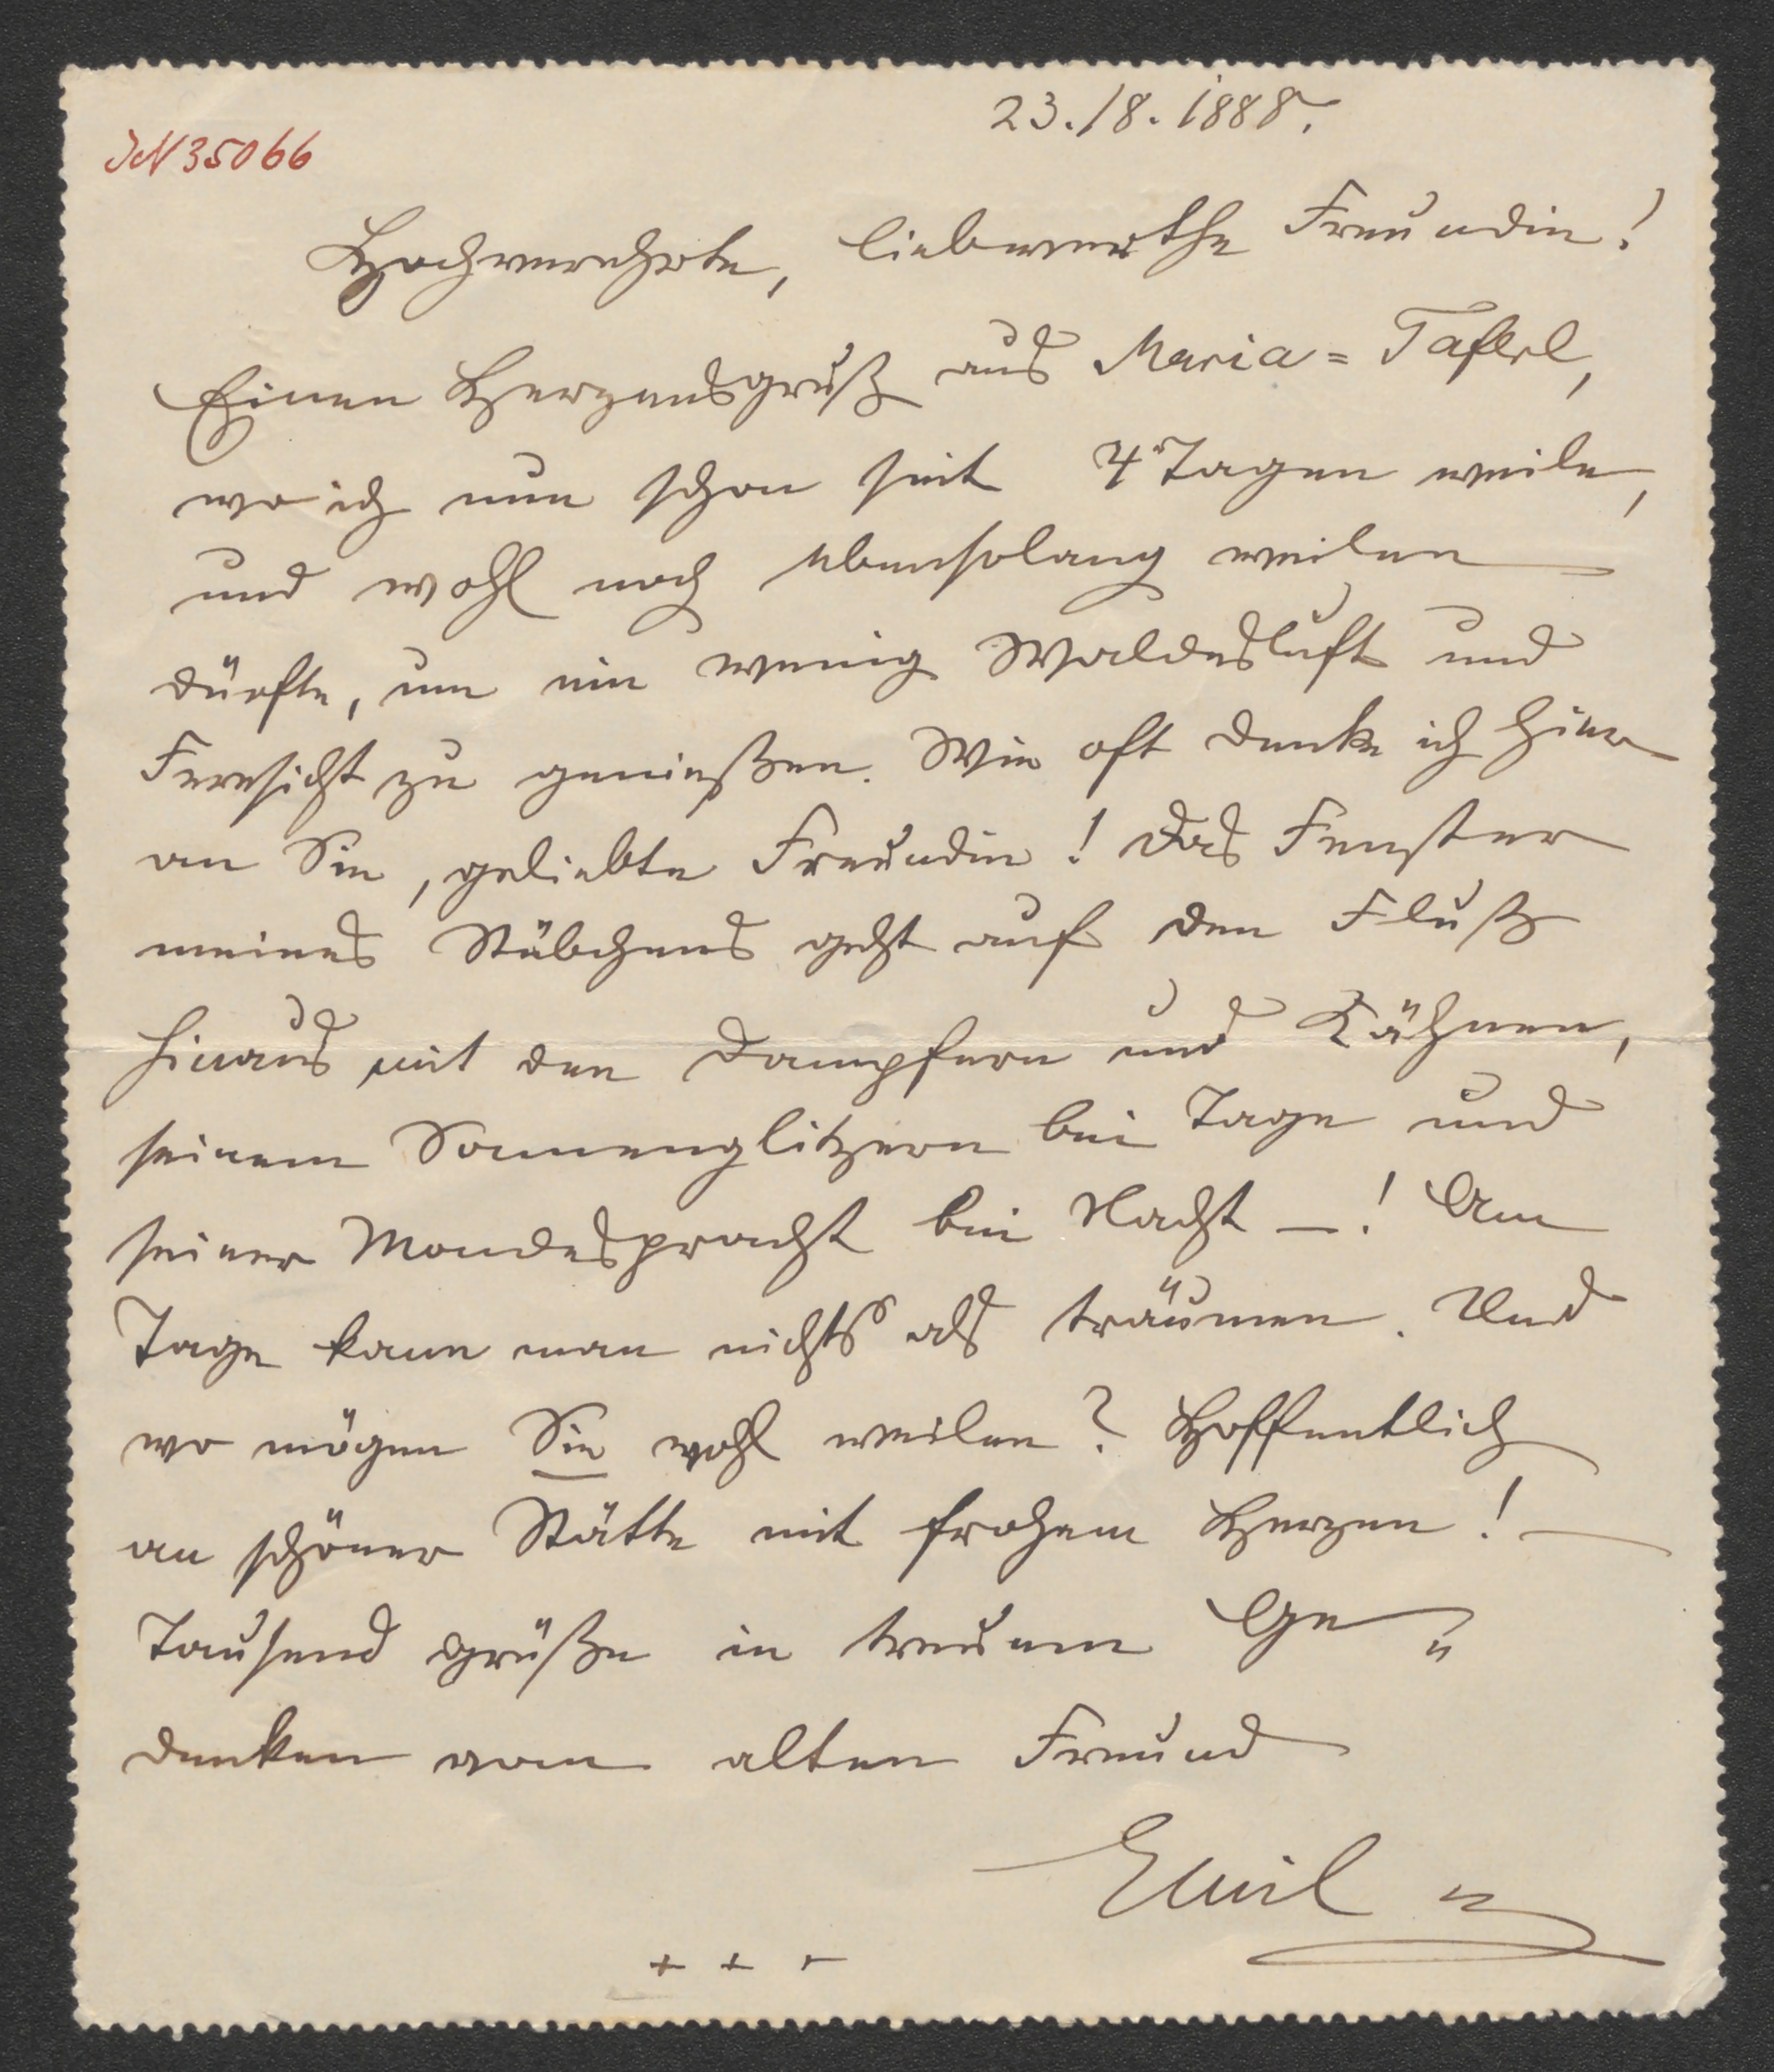 23./8. 1888.
IN 35066
Hochverehrte, liebwerthe Freundin!
Einen Herzensgruß aus Maria=Taferl,
wo ich nun schon seit 4 Tagen weile,
und wohl noch ebensolang weilen
dürfte, um ein wenig Waldesluft und
Fernsicht zu genießen. Wie oft denke ich hier
an Sie, geliebte Freundin! Das Fenster
meines Stübchens geht auf den Fluß
hinaus mit den Dampfern und Kähnen,
seinem Sonnenglitzern bei Tage und
seiner Mondespracht bei Nacht –! Am
Tage kann man nichts als träumen. Und
wo mögen Sie wohl weilen? Hoffentlich
an schöner Stätte mit frohem Herzen! –
Tausend Grüße in treuem Ge=
denken vom alten Freund
Emil
+ + +